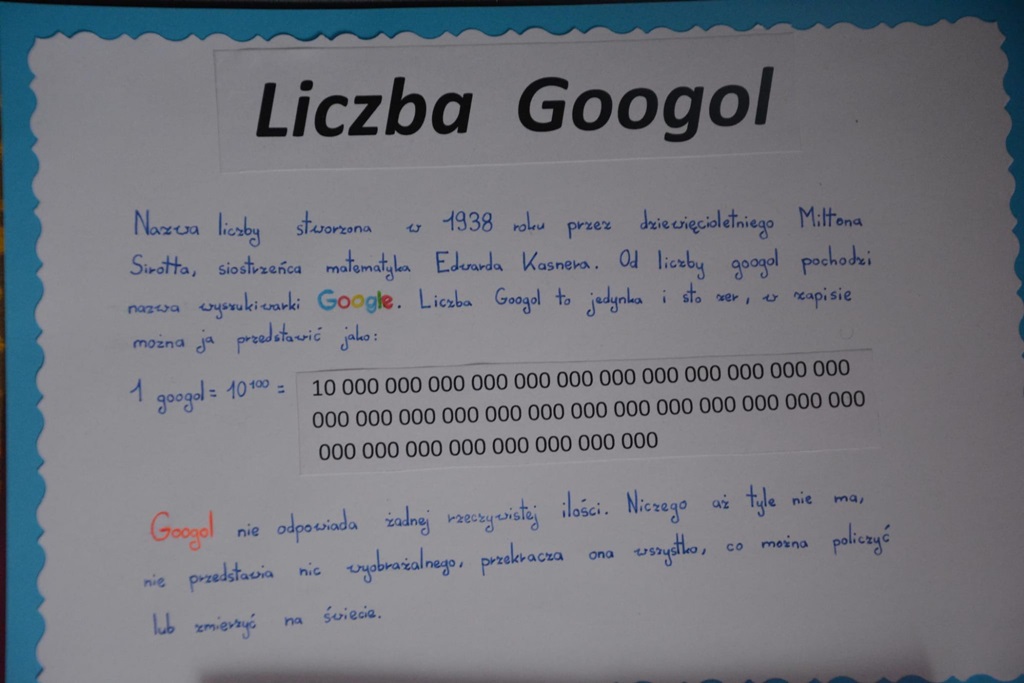 Liczba Googol
Nazwa liczby stworzona w 1938 roku przez dziewięcioletniego Miltona
Sirotta, siostrzeńca matematyka Edwarda Kasnera. Od liczby googol pochodzi
nazwa wyszukiwarki Google. Liczba Googol to jedynka i sto zer, w zapisie
można ja przedstawić jako:
1 googol = 10¹⁰⁰ = 10 000 000 000 000 000 000 000 000 000 000 000 000
000 000 000 000 000 000 000 000 000 000 000 000 000
000 000 000 000 000 000 000 000
Googol nie odpowiada żadnej rzeczywistej ilości. Niczego aż tyle nie ma,
nie przedstawia nic wyobrażalnego, przekracza ona wszystko, co można policzyć
lub zmierzyć na świecie.